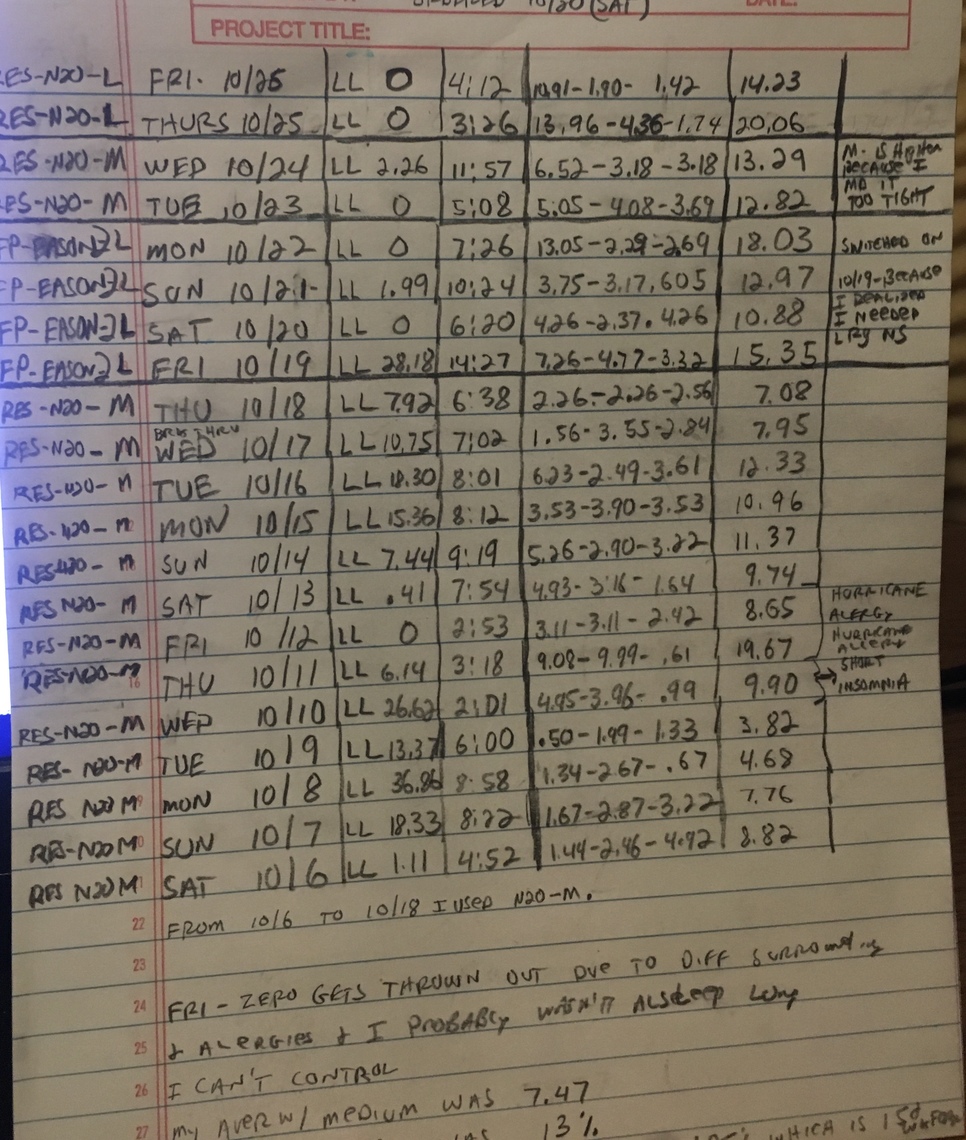 UPDATED 10/20 (SAT)
PROJECT TITLE:
RES-N20-L FRI. 10/26 LL 0 4:12 10.91-1.90- 1.42 14.23
RES-N20-L THURS 10/25 LL 0 3:26 13.96-4.36-1.74 20.06
RES-N20-M WED 10/24 LL 2.26 11:57 6.52-3.18-3.18 13.29 M- IS HIGHER BECAUSE I
RES-N20-M TUE 10/23 LL 0 5:08 5.05-4.08-3.69 12.82 MD IT TOO TIGHT
FP-EASON2L MON 10/22 LL 0 7:26 13.05-2.29-2.69 18.03 SWITCHED ON
FP-EASON2L SUN 10/21- LL 1.99 10:24 3.75-3.17,605 12.97 10/19-BECAUSE
FP-EASON-2L SAT 10/20 LL 0 6:20 4.26-2.37.4.26 10.88 I REALIZED I NEEDED
FP-EASON2L FRI 10/19 LL 28.18 14:27 7.26-4.77-3.32 15.35 LRG NS
RES-N20-M THU 10/18 LL 7.92 6:38 2.26-2.26-2.56 7.08
BRK THRU
RES-N20-M WED 10/17 LL 10.75 7:02 1.56-3.55-2.84 7.95
RES-N20-M TUE 10/16 LL 18.30 8:01 6.23-2.49-3.61 12.33
RES-N20-M MON 10/15 LL 15.36 8:12 3.53-3.90-3.53 10.96
RES-N20-M SUN 10/14 LL 7.44 9:19 5.26-2.90-3.22 11.37
RES N20-M SAT 10/13 LL .41 7:54 4.93-3.16-1.64 9.74
RES-N20-M FRI 10/12 LL 0 2:53 3.11-3.11-2.42 8.65 HURRICANE ALERGY
RES-N20-M THU 10/11 LL 6.14 3:18 9.08-9.99-.61 19.67 HURRICANE ALLERGY
RES-N20-M WED 10/10 LL 26.62 2:01 4.95-3.96-.99 9.90 SHORT INSOMNIA
RES-N20-M TUE 10/9 LL 13.37 6:00 .50-1.99-1.33 3.82
RES N20 M MON 10/8 LL 36.86 8:58 1.34-2.67-.67 4.68
RES-N20M SUN 10/7 LL 18.33 8:22 1.67-2.87-3.22 7.76
RES N20M SAT 10/6 LL 1.11 4:52 1.44-2.46-4.92 8.82
22 FROM 10/6 TO 10/18 I USED N20-M.
23
24 FRI-ZERO GETS THROWN OUT DUE TO DIFF SURROUNDING
25 & ALERGIES & I PROBABLY WASN'T ALSLEEP LONG
26 I CAN'T CONTROL
27 MY AVER W/ MEDIUM WAS 7.47
13% WHICH IS